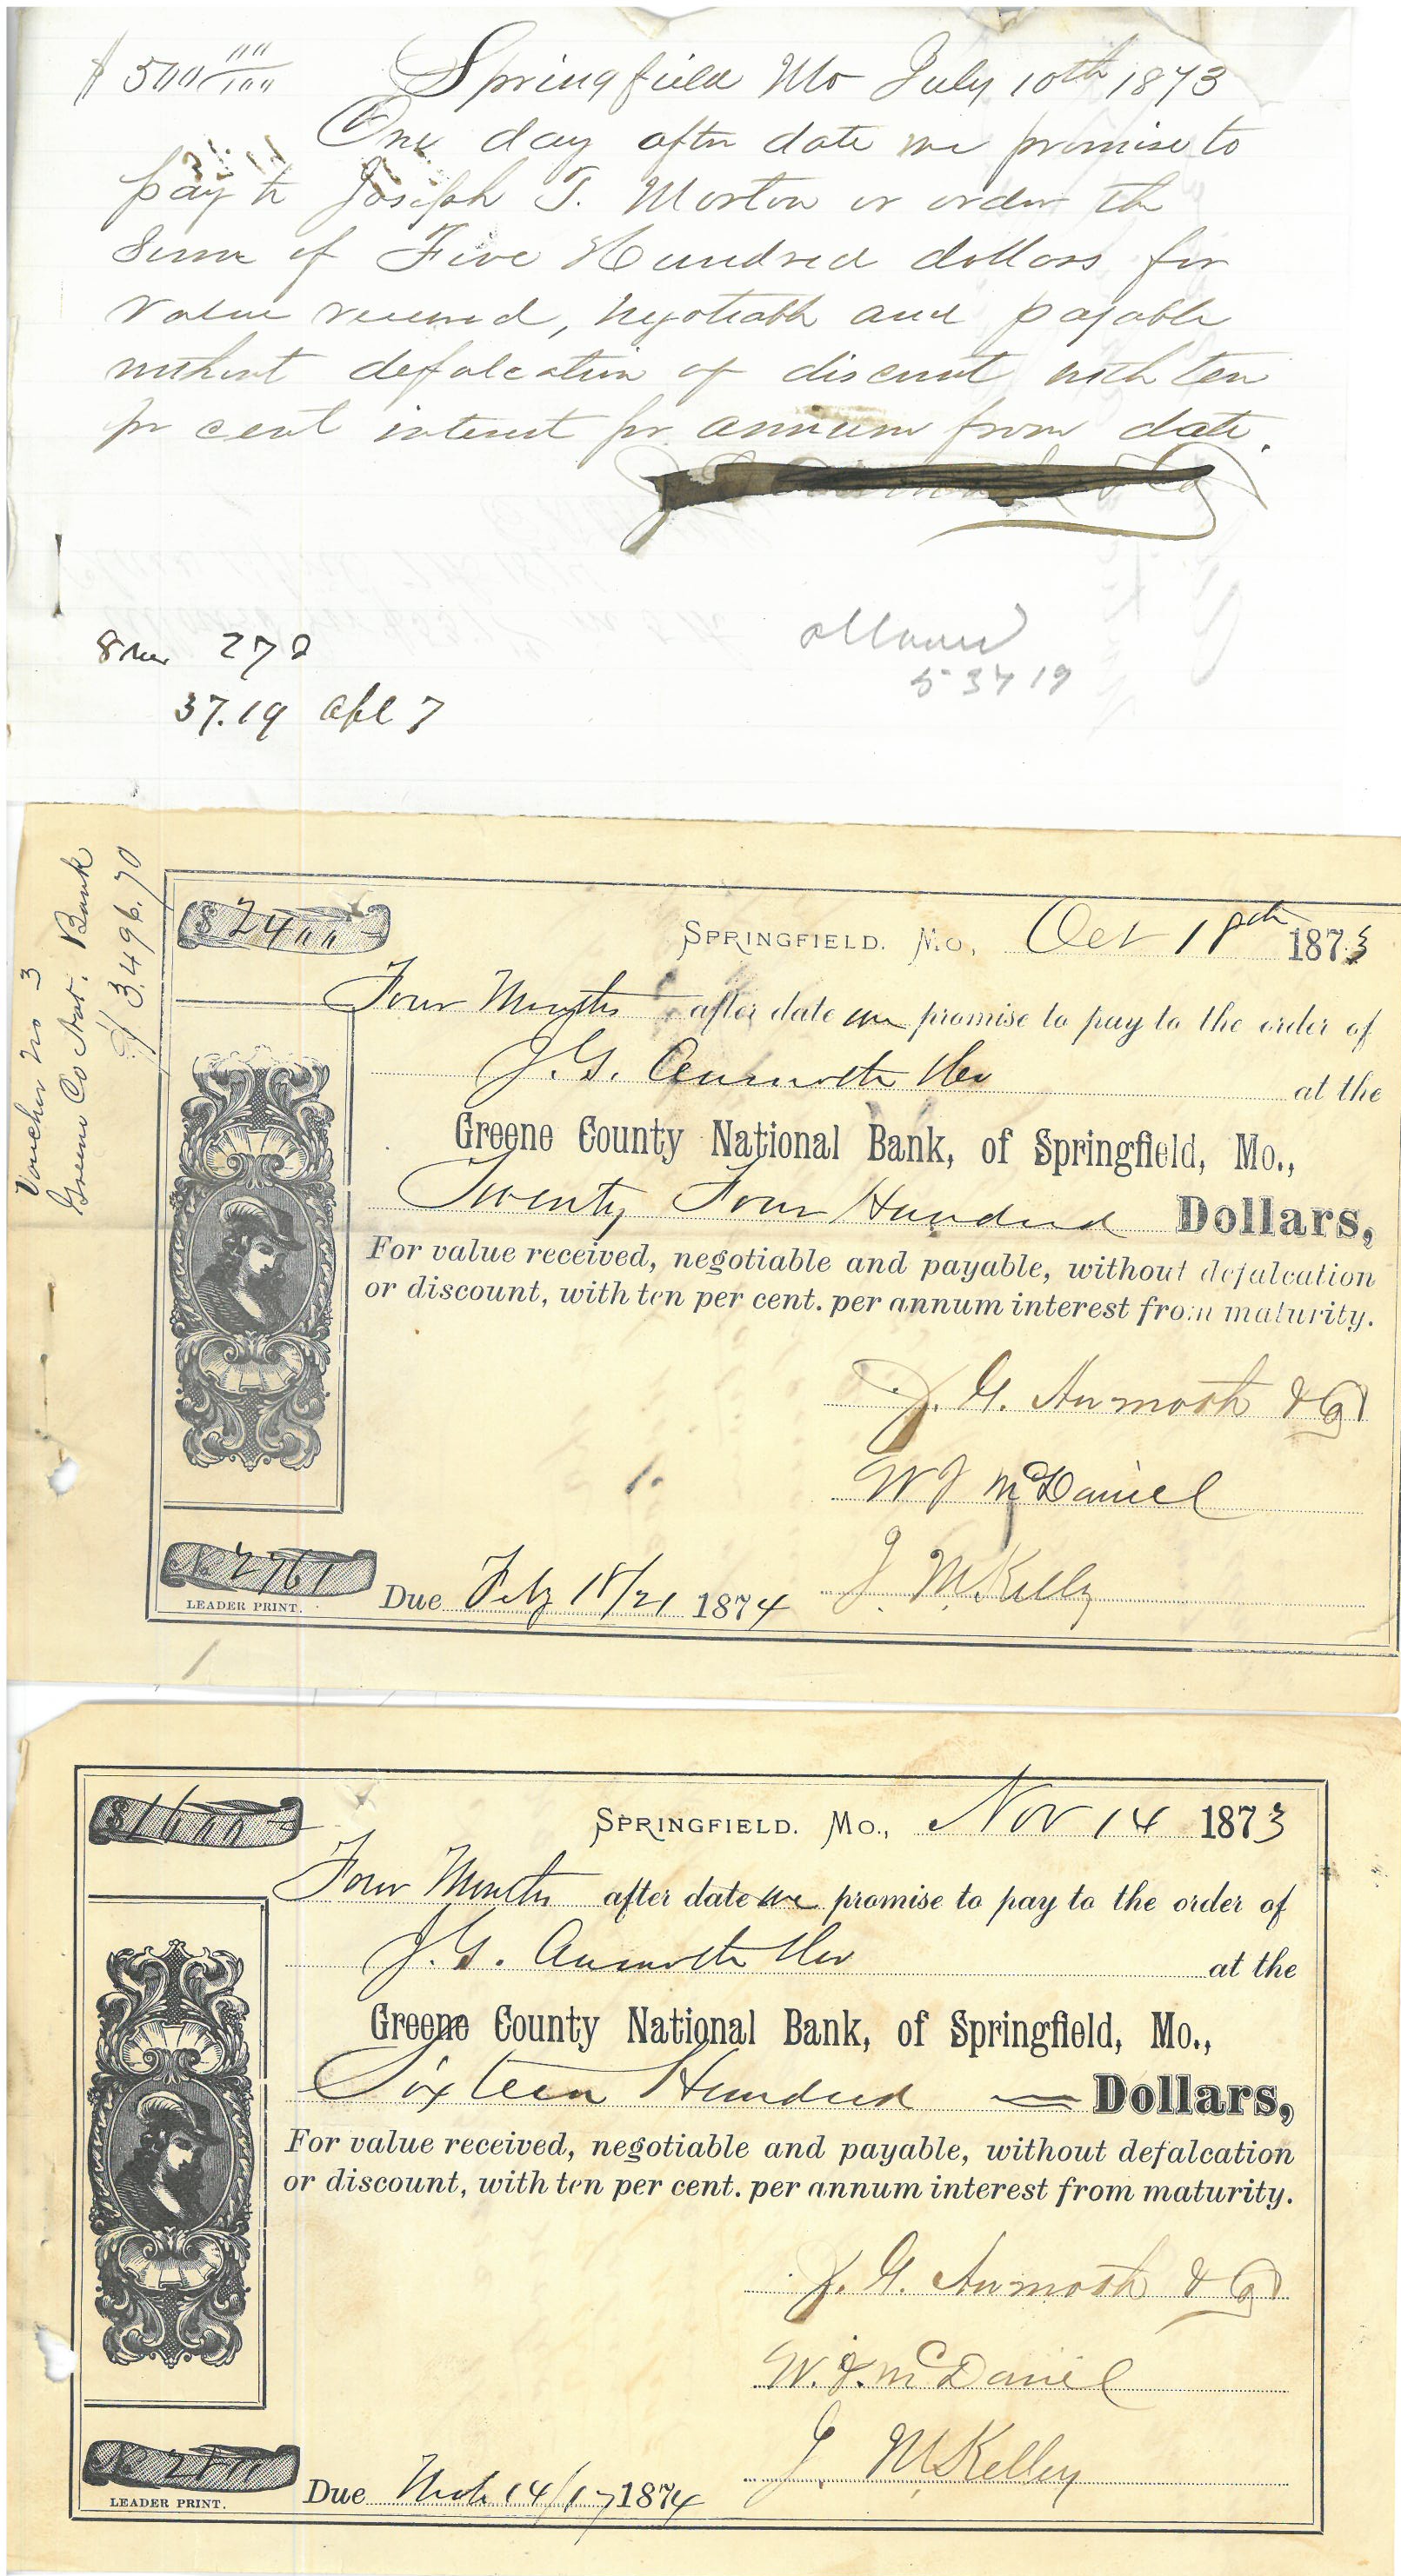 $ 500 00/100 Springfield Mo July 10th 1873
One day after date we promise to
pay to Joseph T. Morton or order the
Sum of Five Hundred dollars for
value received, negotiable and payable
without defalcation or discount with ten
pr cent interest pr annum from date.
27 d
37.19 Apl 7
allowed
537 19
Voucher No 3
Greene Co Nat. Bank
$ 3.496.70
$ 2400
SPRINGFIELD. Mo, Oct 18th 1873
Four Months after date we promise to pay to the order of
J. G. at the
Greene County National Bank, of Springfield, Mo.,
Twenty Four Hundred Dollars,
For value received, negotiable and payable, without defalcation
or discount, with ten per cent. per annum interest from maturity.
J. G. & Co
W J McDaniel
J. M. Kelly
No 2761
LEADER PRINT.
Due Feby 18/21 1874
$ 1600
SPRINGFIELD. Mo., Nov 14 1873
Four Months after date we promise to pay to the order of
J. G. at the
Greene County National Bank, of Springfield, Mo.,
Sixteen Hundred — Dollars,
For value received, negotiable and payable, without defalcation
or discount, with ten per cent. per annum interest from maturity.
J. G. & Co
W. J. McDaniel
J. M. Kelley
No
LEADER PRINT.
Due Mch 14/17 1874